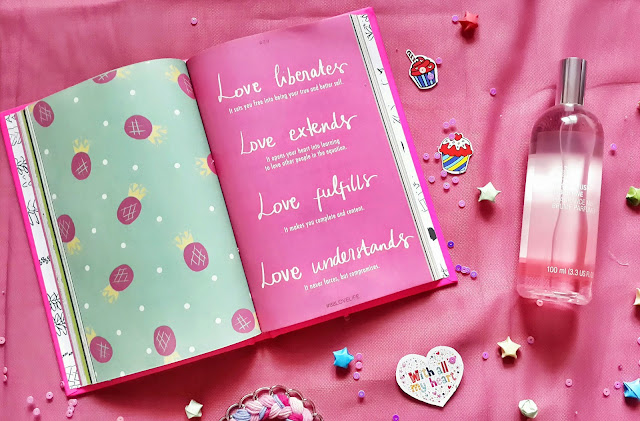 Love liberates
It sets you free into being your true and better self.
Love extends
It opens your heart into learning
to love other people in the equation.
Love fulfills
It makes you complete and content.
Love understands
It never forces, but compromises.
100 ml (3.3 US
With all
my heart